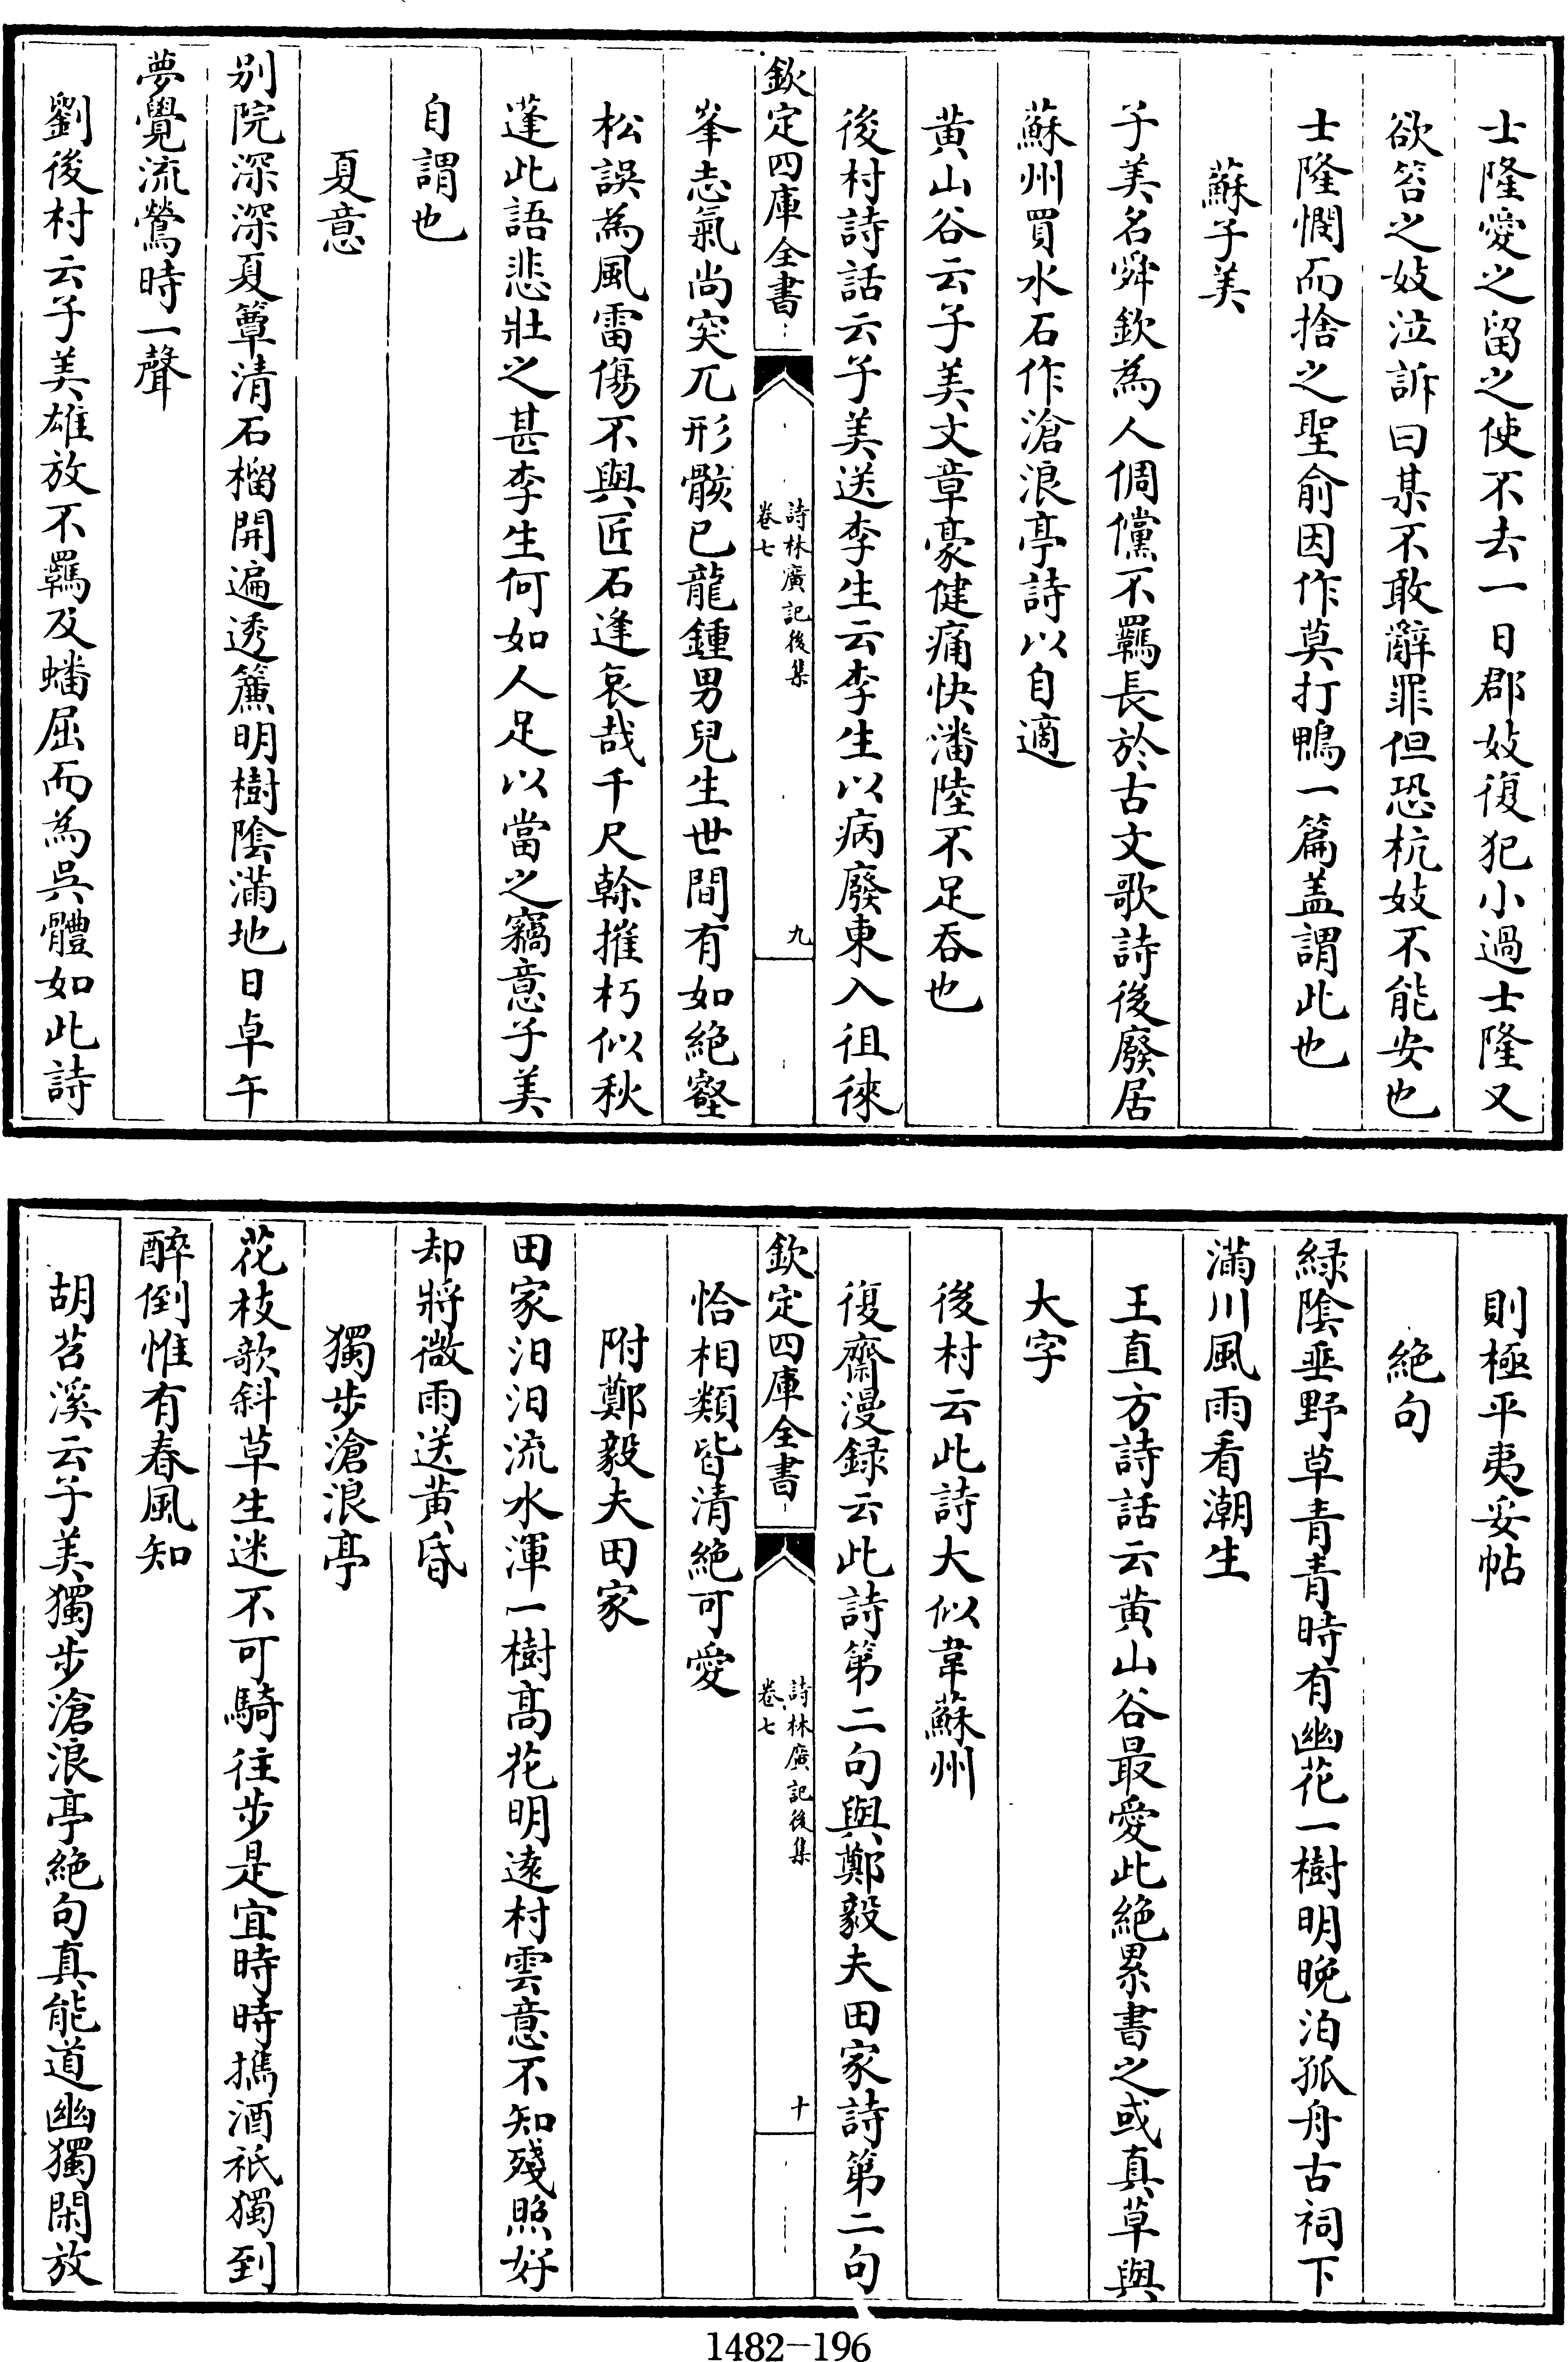 士隆愛之留之使不去一日郡妓復犯小過士隆又
欲笞之妓泣訴曰某不敢辭罪但恐杭妓不能安也
士隆憫而捨之聖俞因作莫打鴨一篇盖謂此也
蘇子美
子美名舜欽為人倜儻不羈長於古文歌詩後廢居
蘇州買水石作滄浪亭詩以自適
黄山谷云子美文章豪健痛快潘陸不足吞也
後村詩話云子美送李生云李生以病廢東入徂徠
欽定四庫全書
詩林廣記後集
卷七
九
峯志氣尚突兀形骸已龍鍾男兒生世間有如絶壑
松誤為風雷傷不與匠石逢哀哉千尺榦摧朽似秋
蓬此語悲壯之甚李生何如人足以當之竊意子美
自謂也
夏意
别院深深夏簟清石榴開遍透簾明樹隂滿地日卓午
夢覺流鶯時一聲
劉後村云子美雄放不羈及蟠屈而為吳體如此詩
則極平夷妥帖
絶句
緑隂垂野草青青時有幽花一樹明晚泊孤舟古祠下
滿川風雨看潮生
王直方詩話云黄山谷最愛此絶累書之或真草與
大字
後村云此詩大似韋蘇州
復齋漫録云此詩第二句與鄭毅夫田家詩第二句
欽定四庫全書
詩林廣記後集
卷七
十
恰相類皆清絶可愛
附鄭毅夫田家
田家汩汩流水渾一樹髙花明逺村雲意不知殘照好
却將微雨送黄昏
獨步滄浪亭
花枝欹斜草生迷不可騎往步是宜時時擕酒祇獨到
醉倒惟有春風知
胡苕溪云子美獨步滄浪亭絶句真能道幽獨閑放
1482-196